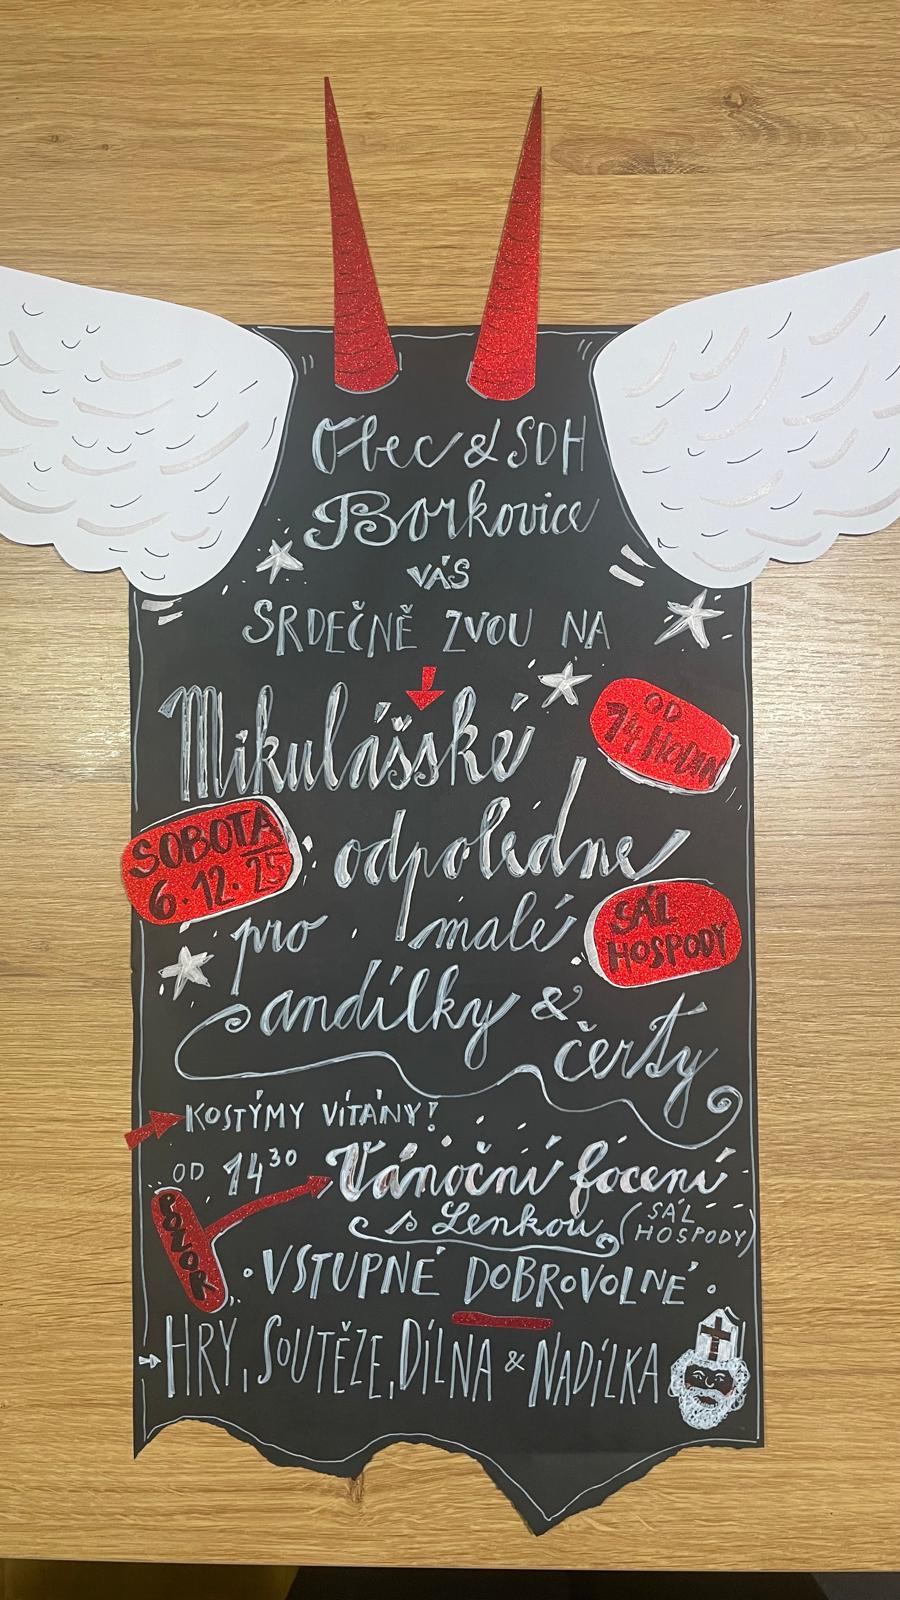 Obec & SDH
Borkovice
VÁS
SRDEČNĚ ZVOU NA
Mikulášské
OD
14 HODIN
odpoledne
SOBOTA
6.12.25
pro malé
SÁL
HOSPODY
andílky &
čerty
KOSTÝMY VÍTÁNY!
OD 14³⁰ Vánoční focení
s Lenkou (SÁL
HOSPODY)
POZOR
• VSTUPNÉ DOBROVOLNÉ •
HRY, SOUTĚŽE, DÍLNA & NADÍLKA